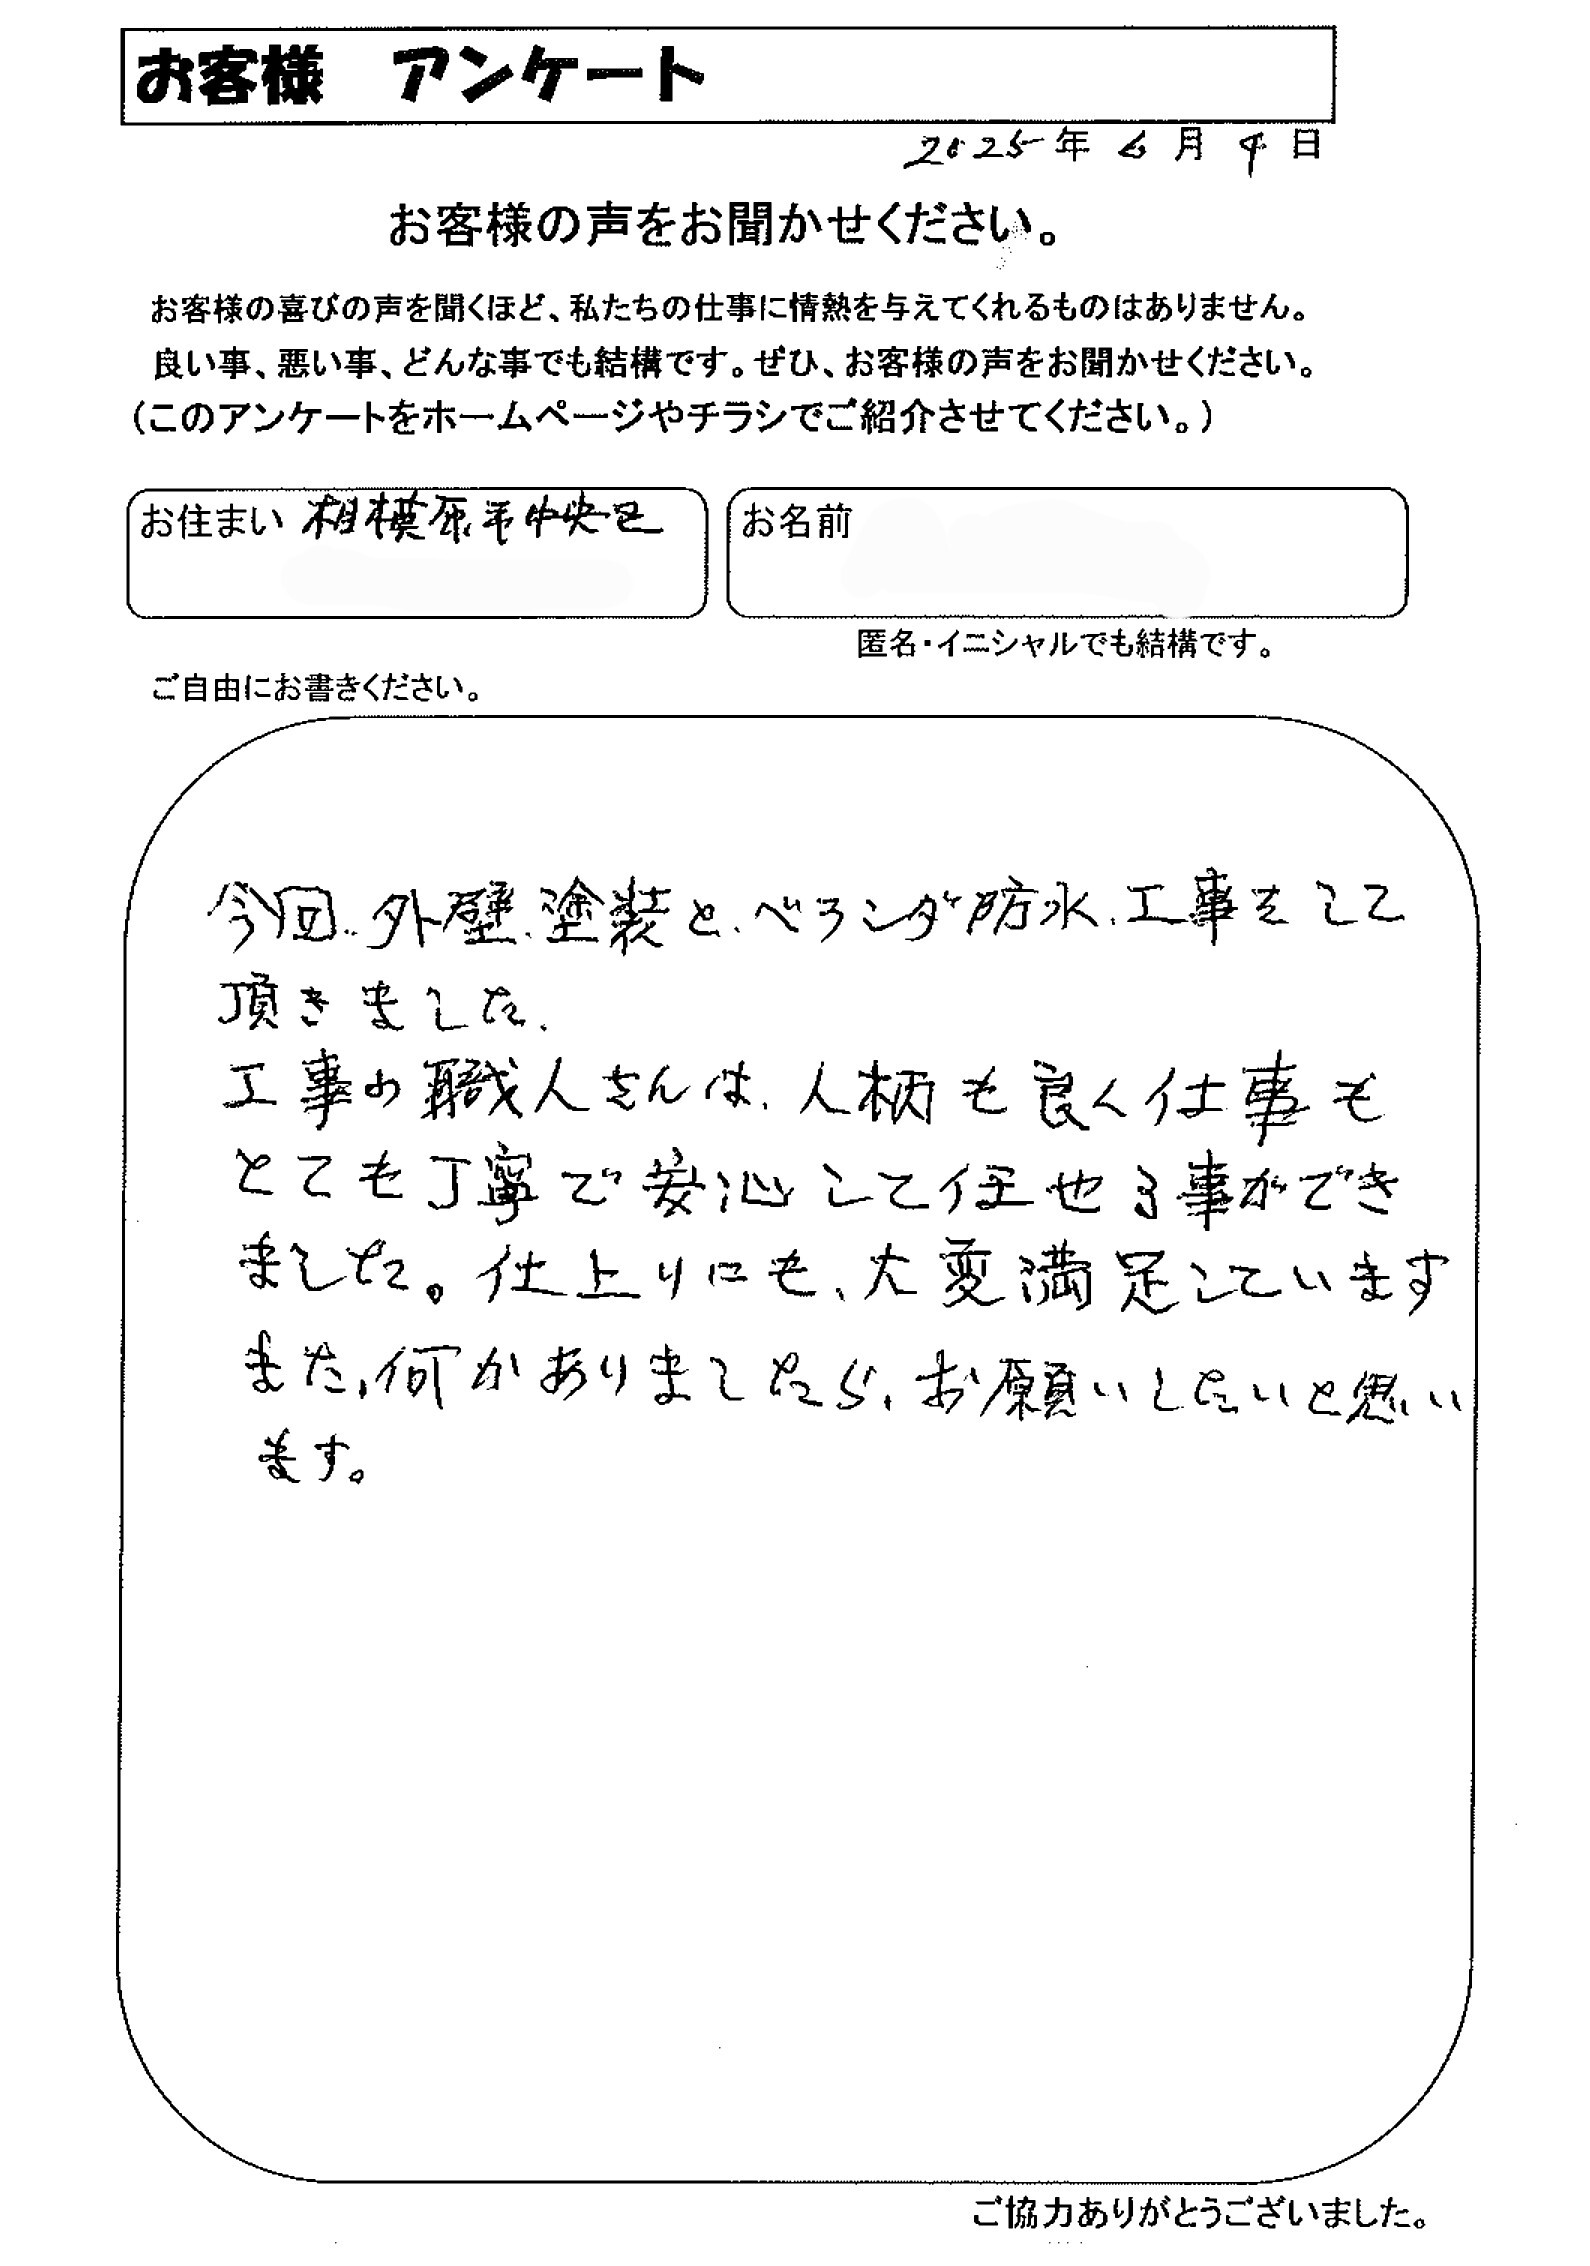 お客様　アンケート
2025年 6月 9日
お客様の声をお聞かせください。
お客様の喜びの声を聞くほど、私たちの仕事に情熱を与えてくれるものはありません。
良い事、悪い事、どんな事でも結構です。ぜひ、お客様の声をお聞かせください。
（このアンケートをホームページやチラシでご紹介させてください。）
お住まい 相模原市中央区
お名前
匿名・イニシャルでも結構です。
ご自由にお書きください。
今回、外壁、塗装と、ベランダ防水、工事をして
頂きました、
工事の職人さんは、人柄も良く仕事も
とても丁寧で安心して任せる事ができ
ました。仕上りにも、大変満足しています
また、何かありましたら、お願いしたいと思い
ます。
ご協力ありがとうございました。